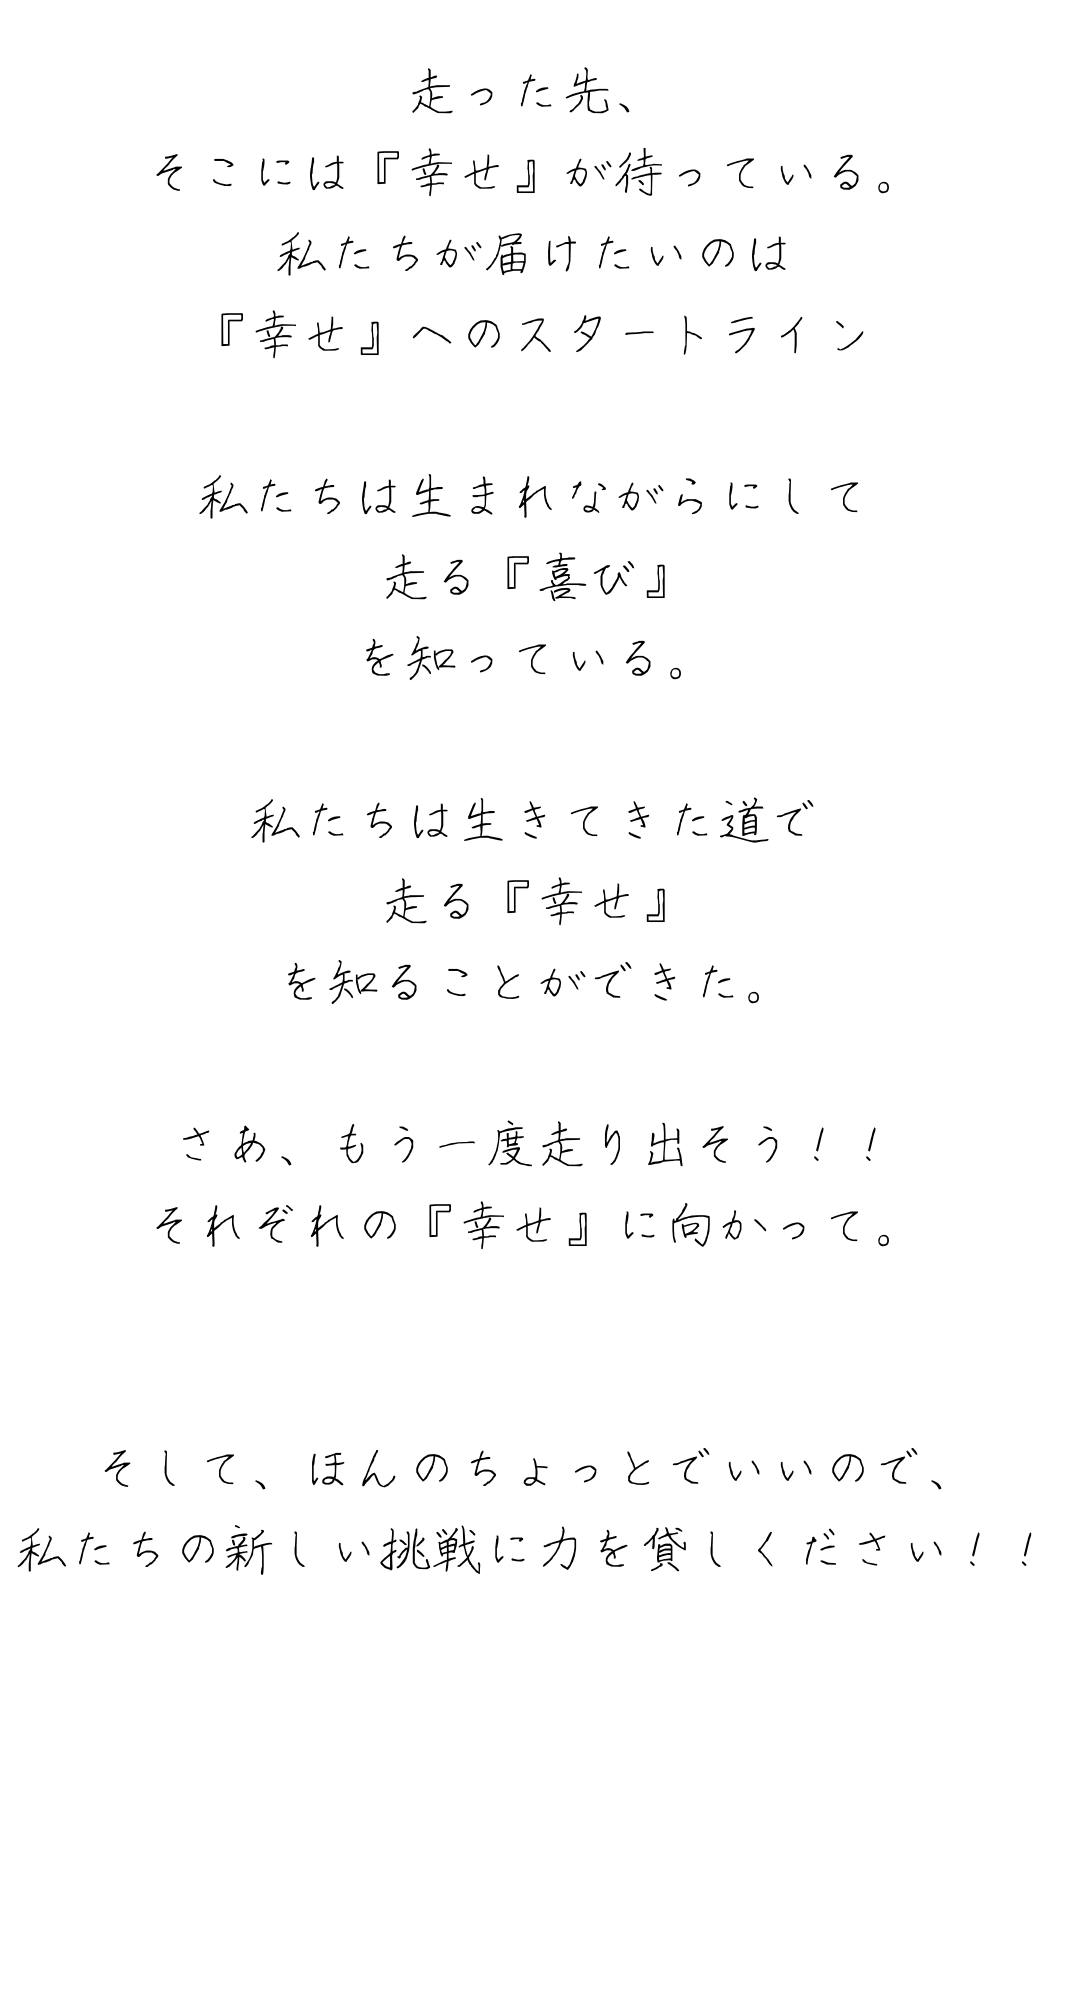 走った先、
そこには『幸せ』が待っている。
私たちが届けたいのは
『幸せ』へのスタートライン
私たちは生まれながらにして
走る『喜び』
を知っている。
私たちは生きてきた道で
走る『幸せ』
を知ることができた。
さあ、もう一度走り出そう！！
それぞれの『幸せ』に向かって。
そして、ほんのちょっとでいいので、
私たちの新しい挑戦に力を貸しください！！